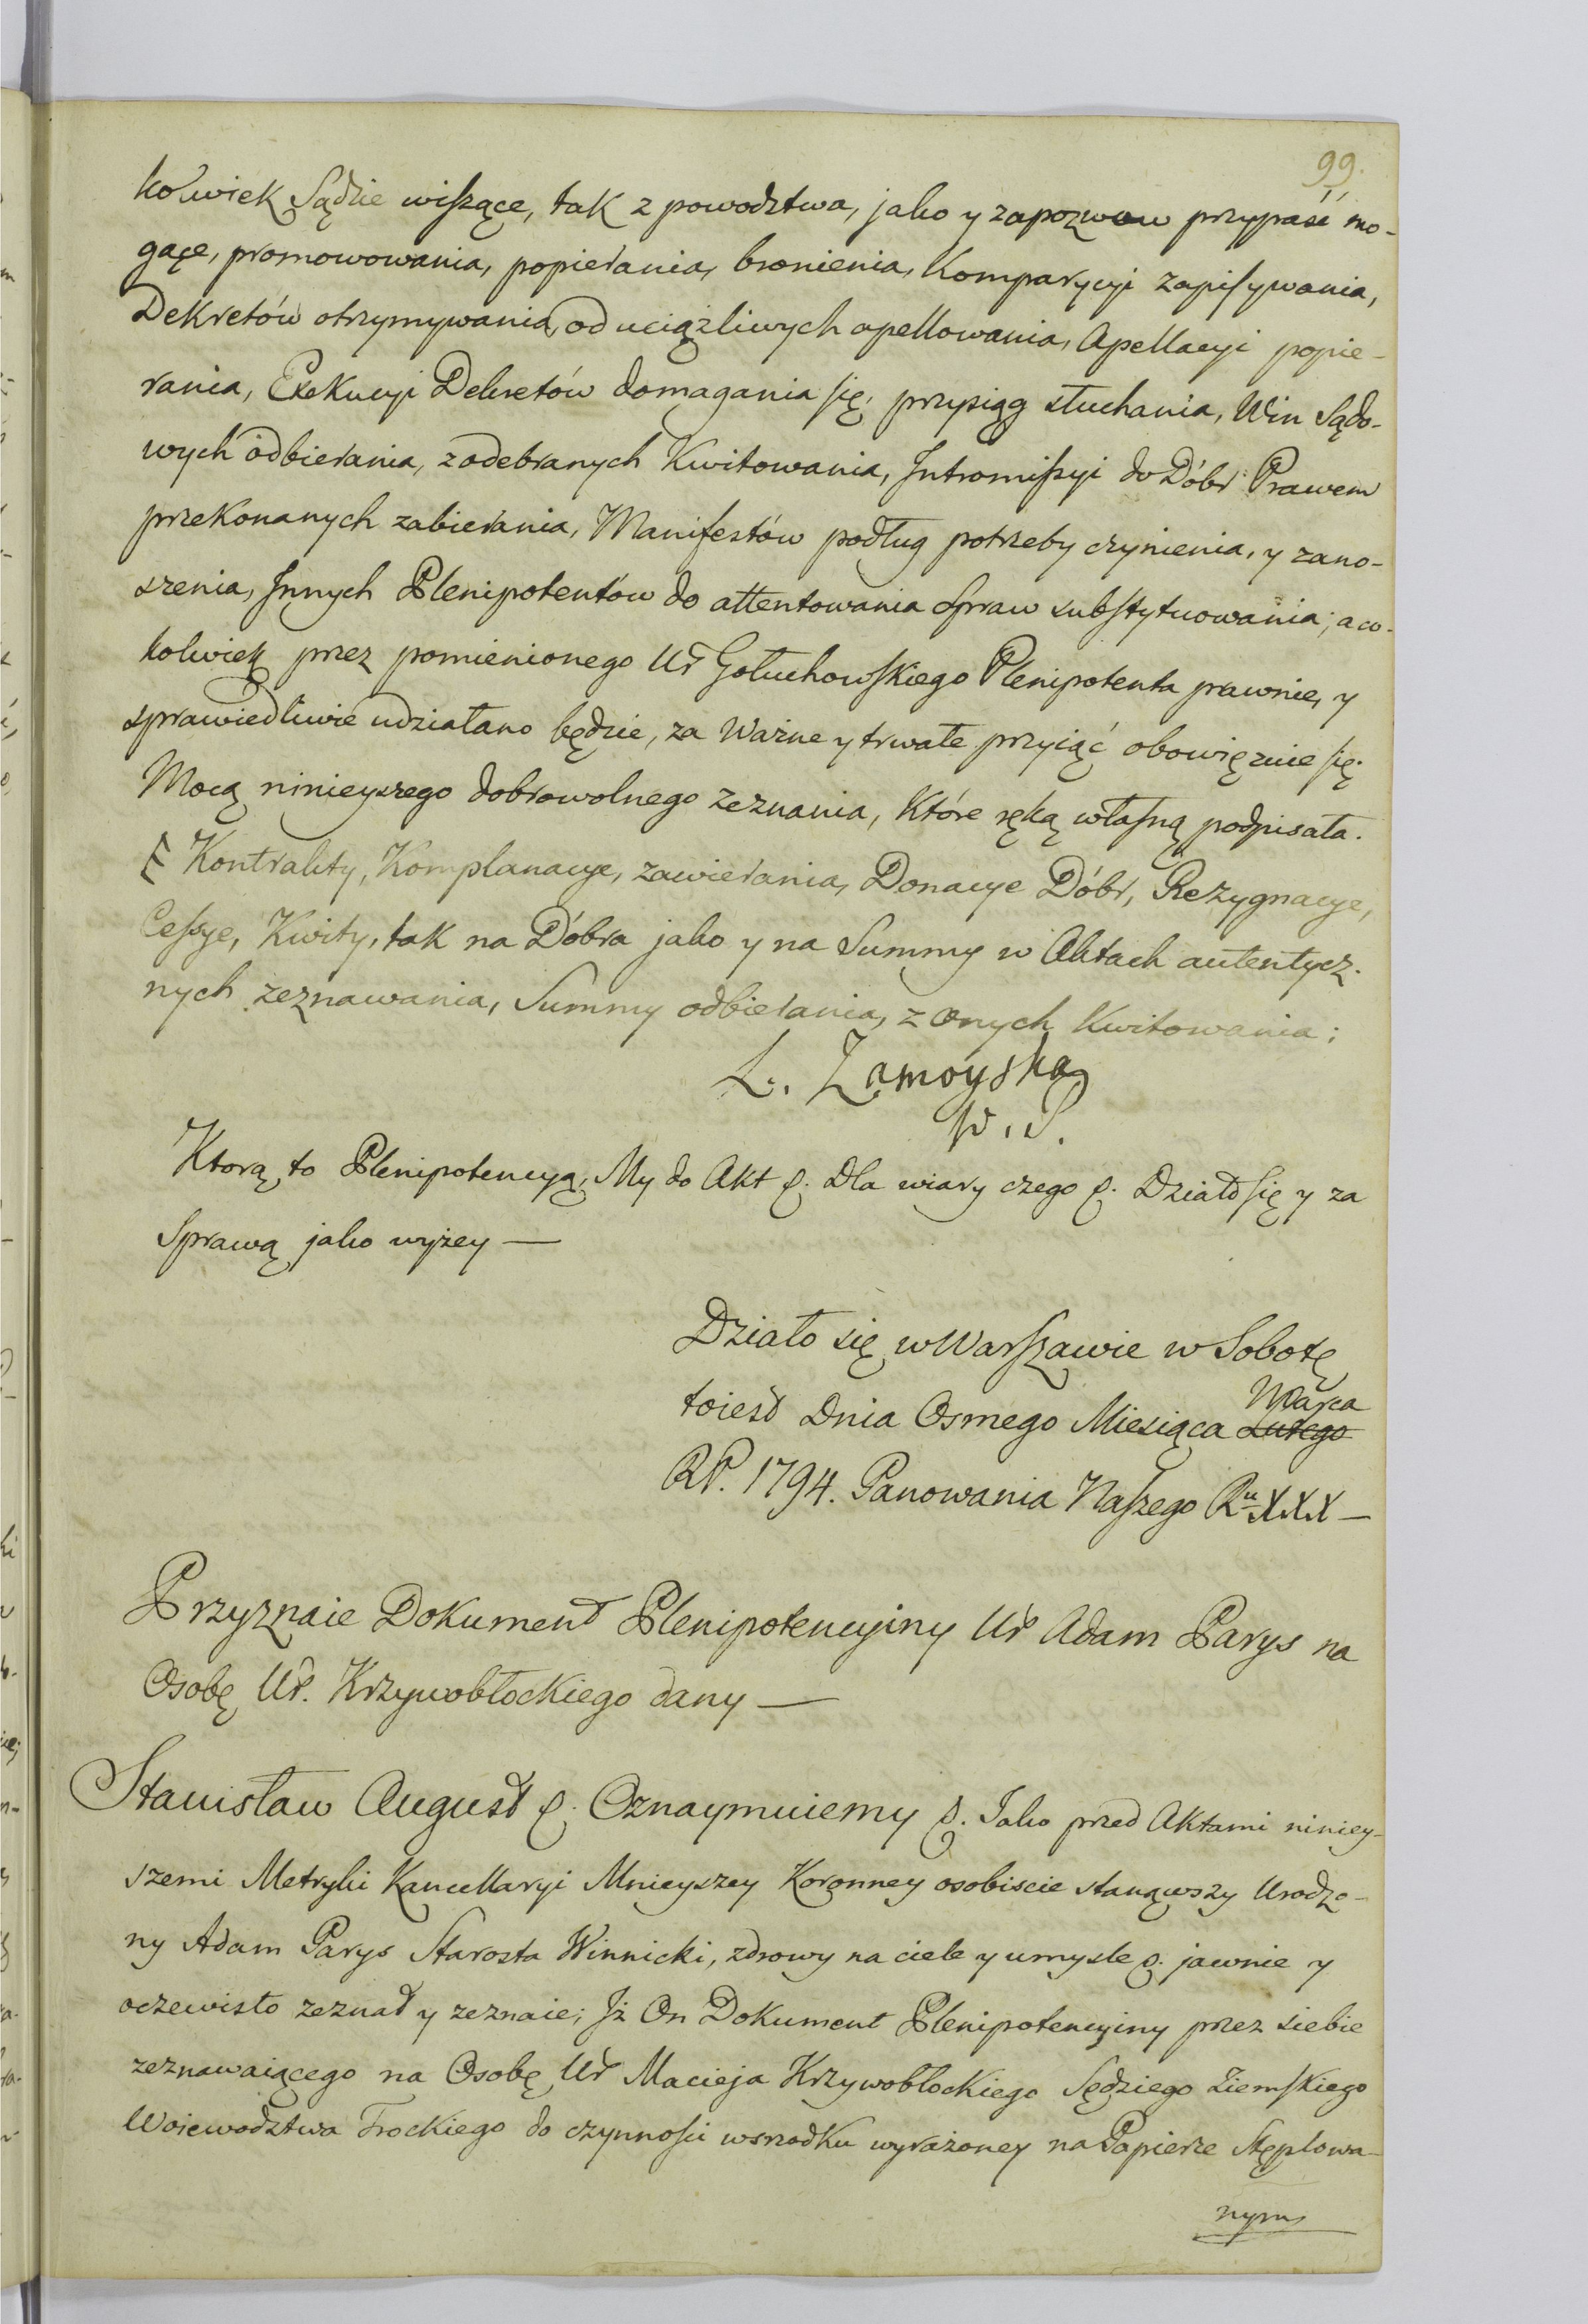 99.
kolwiek Sądzie wiszące, tak z powodztwa, jako y zapozwow przypaść mo-
gące, promowowania, popierania, bronienia, Komparycyi zapisywania,
Dekretów otrzymywania, od uciążliwych apellowania, Apellacyi popie-
rania, Exekucyi Dekretów domagania się, przysiąg słuchania, Win Sądo-
wych odbierania, z odebranych Kwitowania, Intromissyi do Dóbr Prawem
przekonanych zabierania, Manifestów podług potrzeby czynienia, y zano-
szenia, Innych Plenipotentów do attentowania Spraw substytuowania; a co-
kolwiek przez pomienionego Ur Gołuchowskiego Plenipotenta prawnie, y
sprawiedliwie udziałano będzie, za Ważne y trwałe przyiąć obowięzuie się.
Mocą ninieyszego dobrowolnego zeznania, które ręką własną podpisała.
Kontrakty, Komplanacye, zawierania, Donacye Dóbr, Rezygnacye,
Cessye, Kwity, tak na Dobra jako y na Summy w Aktach autentycz-
nych zeznawania, Summy odbierania, z onych Kwitowania;
L. Zamoyska
W. P.
Ktorą to Plenipotencyą, My do Akt &. Dla wiary czego &. Działo się y za
Sprawą jako wyżey —
Działo się w Warszawie w Sobotę
toiest Dnia Osmego Miesiąca Lutego Marca
RP. 1794. Panowania Naszego Ru XXX —
Przyznaie Dokument Plenipotencyiny Ur Adam Parys na
Osobę Ur. Krzywobłockiego dany —
Stanisław August &. Oznaymuiemy &. Jako przed Aktami niniey-
szemi Metryki Kancellaryi Mnieyszey Koronney osobiscie stanąwszy Urodzo-
ny Adam Parys Starosta Winnicki, zdrowy na ciele y umysle &. jawnie y
oczewisto zeznał y zeznaie; Iż On Dokument Plenipotencyiny przez siebie
zeznawaiącego na Osobę Ur Macieja Krzywobłockiego Sędziego Ziemskiego
Woiewodztwa Trockiego do czynnosci wsrzodku wyrażoney na Papierze Stęplowa-
nym